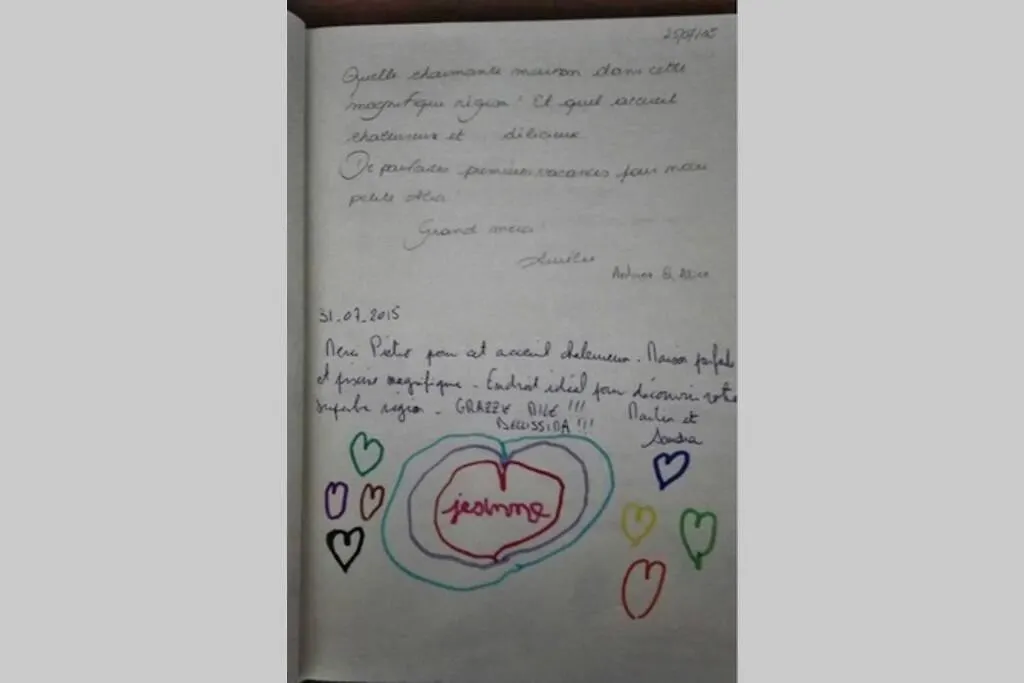 25/07/15
Quelle charmante maison dans cette
magnifique région! Et quel accueil
chaleureux et délicieux.
De parfaites premières vacances pour notre
petite
Grand merci
31.07.2015
Merci Pietro pour cet accueil chaleureux. Maison parfaite
et piscine magnifique. Endroit idéal pour découvrir votre
superbe région. GRAZZE MILE !!!
BELLISSIMA !!!
Martin et
Sandra
jeanne